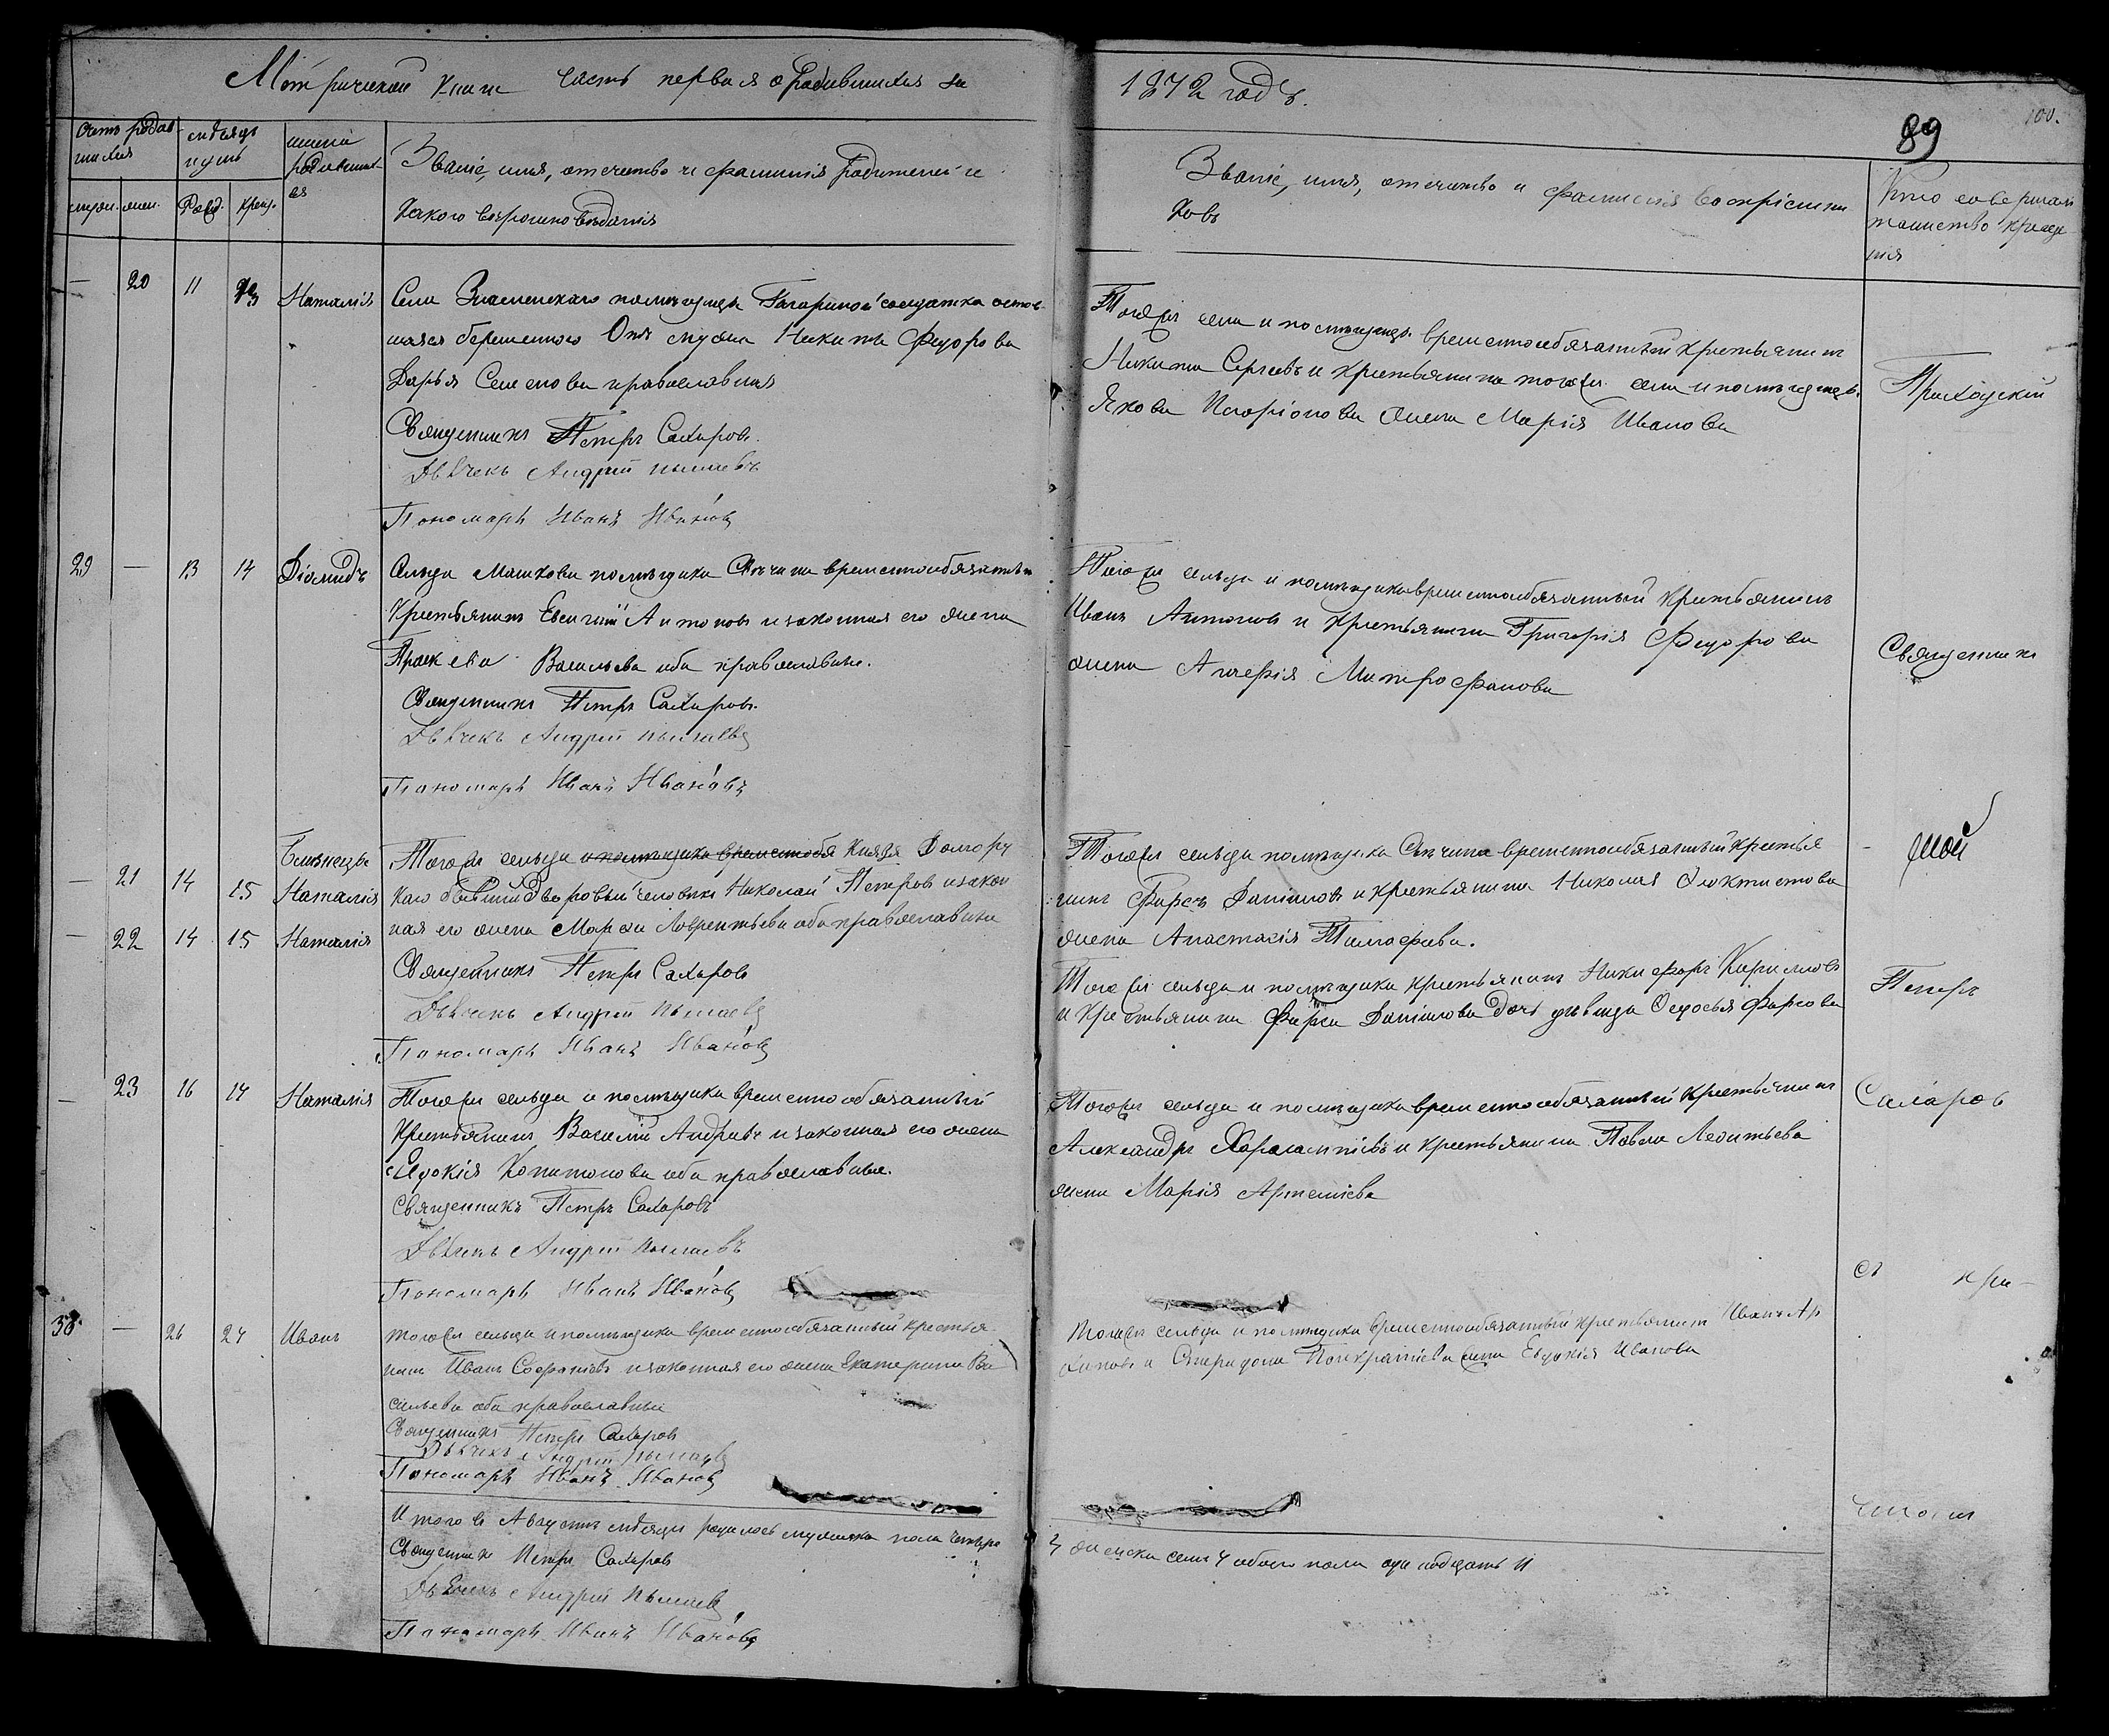 Метрической книги часть первая о родившихся за
1872 годъ.
89
100.
Счетъ родив-
шихся
мѣсяцъ
имена
родивших-
ся
Званіе, имя, отечество и фамилія родителей и
какого вѣроисповѣданія
Рожд. Крещ.
Званіе, имя, отечество и фамилія воспріемни-
ковъ
Кто совершалъ
таинство креще-
нія
— 20 11 13 Наталія
Села Знаменскаго помѣщицы Гагариной солдатка остав-
шаяся беременною отъ мужа Никиты Федорова
Дарья Семенова православная
Священникъ Петръ Сахаровъ.
Дьячекъ Андрей
Пономарь Иванъ Ивановъ
Тогожъ села и помѣщицы временнообязанный крестьянинъ
Никита Сергѣевъ и крестьянина тогожъ села и помѣщицы
Якова Иларіонова жена Марія Иванова
Приходскій
29 — 13 14 Діомидъ
Сельца Машкова помѣщика временнообязанный
крестьянинъ Евгеній Антоновъ и законная его жена
Васильева оба православные.
Священникъ Петръ Сахаровъ.
Дьячекъ Андрей
Пономарь Иванъ Ивановъ
Тогожъ сельца и помѣщика временнообязанный крестьянинъ
Иванъ Антоновъ и крестьянина Григорія Федорова
жена Митрофанова
Священникъ
Близнецы
21 14 15 Наталія
— 22 14 15 Наталія
Тогожъ сельца и помѣщика временнообя Князя Долгору
каго бывшій дворовый человѣкъ Николай Петровъ и закон
ная его жена Марѳа Лаврентьева оба православные
Священникъ Петръ Сахаровъ
Дьячекъ Андрей
Пономарь Иванъ Ивановъ
Тогожъ сельца помѣщика временнообязанный крестья
нинъ Фирсъ Даниловъ и крестьянина Николая
жена Анастасія Тимофеева.
Тогожъ сельца и помѣщика крестьянинъ Никифоръ Кириловъ
и крестьянина Фирса Данилова дочь дѣвица Федосья Фирсова
Петръ
— 23 16 17 Наталія
Тогожъ сельца и помѣщика временно обязанный
крестьянинъ Василій Андреевъ и законная его жена
Капитонова оба православные.
Священникъ Петръ Сахаровъ
Дьячекъ Андрей
Пономарь Иванъ Ивановъ
Тогожъ сельца и помѣщика временнообязанный крестьянинъ
Александръ Харалампіевъ и крестьянина Павла Леонтьева
жена Марія Артеміева
Сахаровъ
съ при-
30 — 26 27 Иванъ
Тогожъ сельца и помѣщика временнообязанный крестья-
нинъ Иванъ и законная его жена Екатерина Ва
сильева оба православные
Священникъ Петръ Сахаровъ
Дьячекъ Андрей
Пономарь Иванъ Ивановъ
Тогожъ сельца и помѣщика временнообязанный крестьянинъ Иванъ Ар
хиповъ и Спиридона Панкратіева жена Евдокія Иванова
чтомъ
Итого въ Августѣ мѣсяцѣ родилось мужеска пола четыре
4 женска семь 7 обоего пола одинадцать 11
Священникъ Петръ Сахаровъ
Дьячекъ Андрей
Пономарь Иванъ Ивановъ